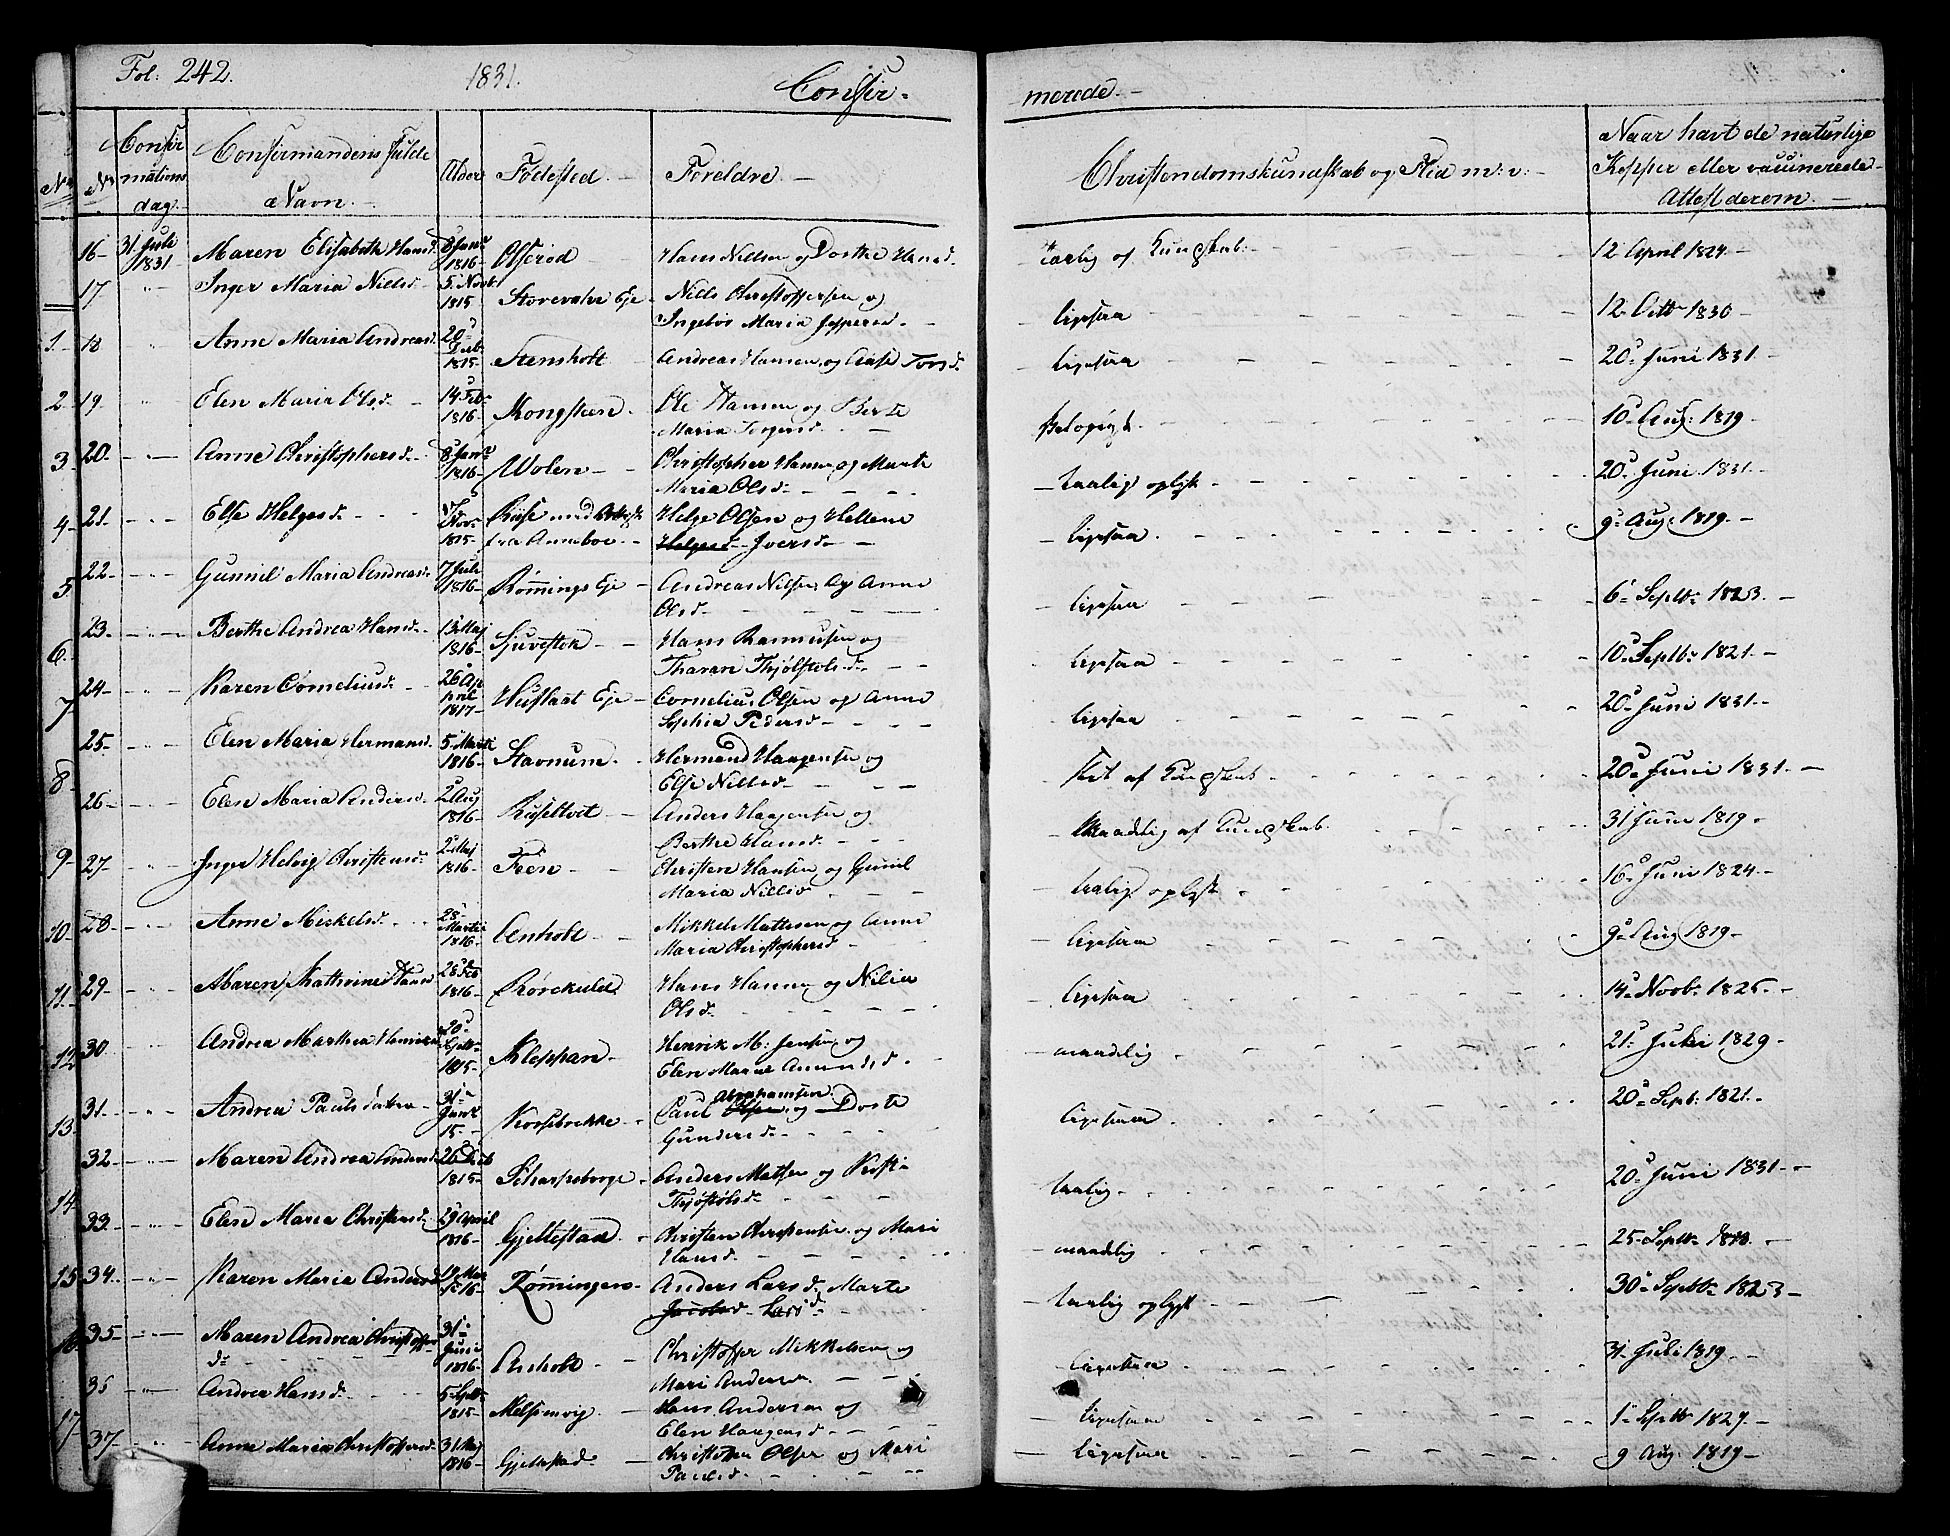 Fol: 242. 1831. Confir- merede.-
No. Confirmations dag. Confirmandens fulde Navn. Alder Födested. Foreldre. Christendomskundskab og Flid m: v: Naar havt de naturlige Kopper eller vaccinerede Attest derom.
16 31 Juli 1831 Maren Elisabeth Hansd. 8 Janr 1816 Olserød Hans Nilsen og Dorthe Hansd. Taalig af Kundskab. 12 April 1824
17 Inger Maria Nielsd. 5 Novbr 1815 Storevahr Eje Niels Christoffersen og Ingebor Maria Jeppesd. ligesaa 12 Octbr 1830
1. 18 Anne Maria Andreasd. 20 1815 Stensholt Andreas Hansen og Aase Torsd. ligesaa 20 Juni 1831
2 19. Elen Maria Olsd. 14 Feb. 1816 Kongsteen Ole Hansen og Berte Maria Torgersd. 10 Aug: 1819
3 20. Anne Christophersd. 8 Janr 1816 Wolen Christopher Hansen og Marte Maria Olsd. taalig oplyst 20 Juni 1831
4 21. Else Helgesd. Nov. 1815 fra Anneboe Helge Olsen og Hellene Iversd. ligesaa 9 Aug 1819
5. 22 Gunnil Maria Andreasd. 7 Juli 1816 Rømmings Eje Andreas Nilsen og Anne Olsd. ligesaa 6 Septbr 1823.
6. 23. Berthe Andrea Hansd. 13 Maj 1816 Sjuestok Hans Rasmussen og Tharan Thjølstolsd. ligesaa 10 Septbr 1821
7 24 Karen Corneliusd. 26 April 1817 Hustaat Eje Cornelius Olsen og Anne Sophia Pedersd. ligesaa 20 Juni 1831
8 25 Elen Maria Hermansd. 5 Marti 1816 Stavnum Hermand Haagensen og Else Nilsd. af Kundskab 20 Juni 1831
26 Elen Maria Andersd. 2 Aug 1816 Røseltvet Anders Haagensen og Berthe Hansd. Maadelig af Kundskab. 31 Juni 1819
9 27 Inger Helvig Christensd. 2 Maj 1816 Frøn Christen Hansen og Gunil Maria Nilsd. taalig oplyst 16 Juni 1824
10 28 Anne Mickelsd. 28 Marti 1816 Anholt Mikkel Mathesen og Anne Maria Christophersd. ligesaa 9 Aug 1819
11 29 Maren Kathrine Hansd. 28 Feb 1816 Rørekuld Hans Hansen og Nilia Olsd. ligesaa 14 Novbr 1825
12 30 Andrea Marthea Henriksd. 20 Septbr 1815 Kleppan Henrik M: Jensen og Elen Marie Amundsd. maadelig 21 Juli 1829
13. 31. Andrea Paulsdatter 31 Janr 15 Korsebrekke Paul Abrahamsen og Dorte Gundersd. ligesaa 20 Sept: 1821
32 Maren Andrea Andersd. 26 1815 Scharpeborge Anders Matsen og Kirsti Thjøstolsd. taalig 20 Juni 1831
14 33. Elen Maria Christensd. 29 April 1816 Gjellestad Christen Christensen og Mari Hansd. maadelig 25 Septbr 1818.
15 34. Karen Maria Andersd. 19 Mar 1816 Rømmingen Anders Lars d. Marte Larsd. taalig oplyst 30 Septbr 1823
16 35 Maren Andrea Christoffersd. 31 Juni 1816 Anholt Christoffer Mikkelsen og Mari Andersd. ligesaa 31 Juli 1819
35 Andrea Hansd. 5 Septbr 1815 Melsomvig Hans Andersen og Elen Haagensd. ligesaa 1 Septbr 1827
17 37 Anne Maria Christoffersd. 31 Maj 1816 Gjelestad Christoffer Olsen og Mari Paulsd. ligesaa 9 Aug: 1819